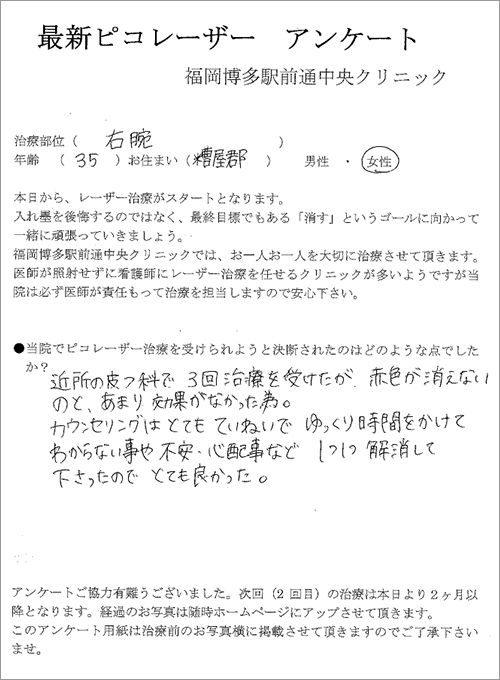 最新ピコレーザー　アンケート
福岡博多駅前通中央クリニック
治療部位（　右腕　）
年齢　（　35　）お住まい（糟屋郡　）　男性　・　女性
本日から、レーザー治療がスタートとなります。
入れ墨を後悔するのではなく、最終目標でもある「消す」というゴールに向かって
一緒に頑張っていきましょう。
福岡博多駅前通中央クリニックでは、お一人お一人を大切に治療させて頂きます。
医師が照射せずに看護師にレーザー治療を任せるクリニックが多いようですが当
院は必ず医師が責任もって治療を担当しますので安心下さい。
●当院でピコレーザー治療を受けられようと決断されたのはどのような点でした
か？
近所の皮フ科で 3回治療を受けたが、赤色が消えない
のと、あまり効果がなかった為。
カウンセリングはとてもていねいで ゆっくり時間をかけて
わからない事や 不安・心配事など 1つ1つ 解消して
下さったので とても良かった。
アンケートご協力有難うございました。次回（2回目）の治療は本日より2ヶ月以
降となります。経過のお写真は随時ホームページにアップさせて頂きます。
このアンケート用紙は治療前のお写真横に掲載させて頂きますのでご了承下さい
ませ。